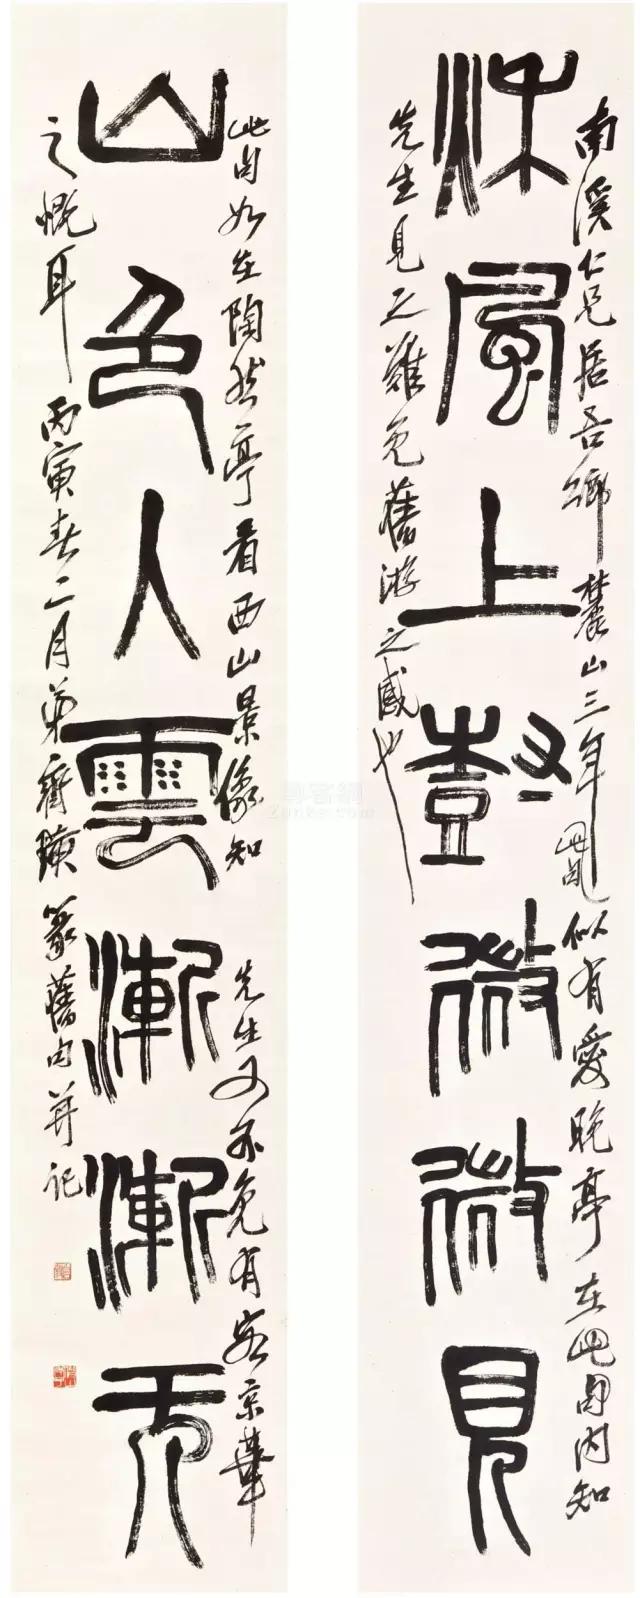 秌風上尌微微見
南溪仁兄居吾鄉麓山三年此句似有愛晚亭在此句內知
先生見之難免舊游之感也
山色入雲漸漸无
此句如在陶然亭看西山景像知
先生又不免有客京華
之慨耳丙寅春二月弟齊璜篆舊句并記